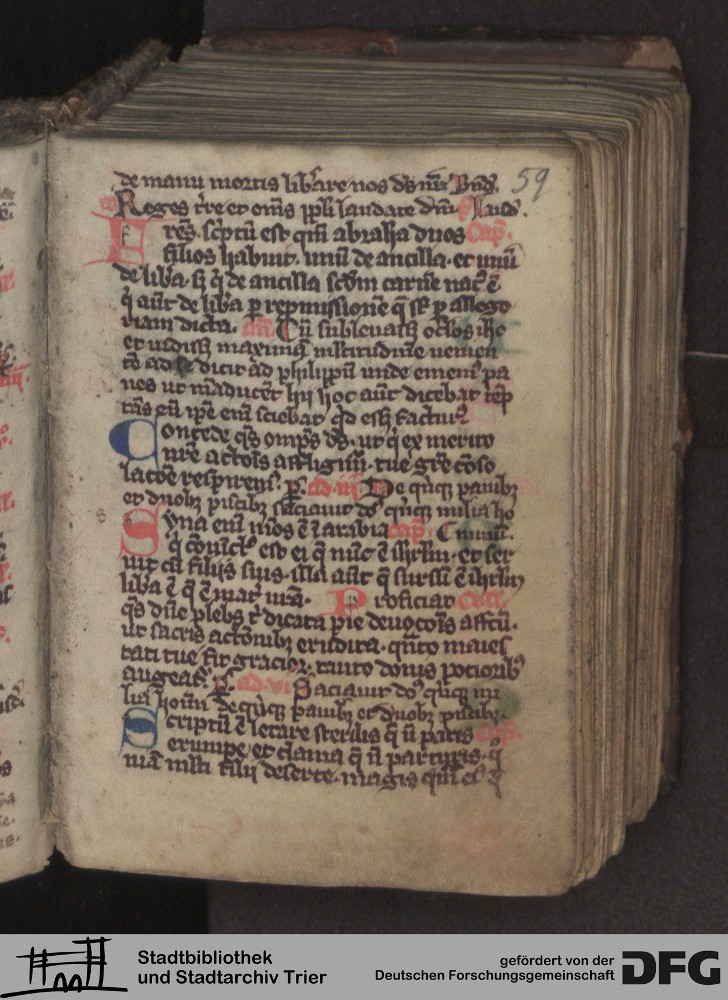 de manu mortis lib̓are nos ds̄ nr̄ Bnd̓. 59
Reges tr̄e et om̄s ppl̓i laudate dn̄m ps̄ Laud̓.
Fres̄. scͥptū est qm̄ abraha duos Cap̄.
filios habuit. unū de ancilla. et unū
de lib̓a. sꝫ qͥ de ancilla scd̄m carnē nat᷒ ē
qͥ aūt de lib̓a ꝑ repmissionē q̄ st̄ ꝑ allego
riam dicta. añ. Cū subleuass̓ oc̓los ih̓c
et uidiss̓ maximā ml̓titudinē uenien
tē ad se dicit ad philippū unde ememꝰ pa
nes ut māducēt hii hoc aūt dicebat tēp
tās eū ip̄e eni sciebat qd̓ ess̓ factur᷒
Concede qs̄ omp̄s ds̄. ut qͥ ex merito
nr̄e actōis affligimͬ. tue gr̄e cōso
lacōe respirem᷒. ꝑ. ad .iii. De qͥnqꝫ panibꝫ
et duobꝫ piscibꝫ saciauit do᷒ qͥnqꝫ milia ho
Syna eni mōs ē ī arabia cap̄. Cminū.
qͥ cōiūctꝰ est ei q̄ nūc ē ihr̓lm̄. et ser
uit cū filiis suis. illa aūt q̄ sursū ē ihr̓lm̄
lib̓a ē q̄ ē mat̓ nr̄a. Proficiat Coll̓.
qs̄ dn̄e plebs t̓ dicata pie deuocōis affcū.
ut sacris actōnibꝫ erudita. qͣnto maies
tati tue fit gracior. tanto donis pocioribꝫ
augeat̓. ꝑ. ad .vi. Saciauit do᷒ qͥnqꝫ mi
lia hoīm de qͥnqꝫ panibꝫ et duobꝫ piscibꝫ.
Scriptū ē letare sterilis q̄ ñ paris Cap̄.
erumpe et clama q̄ ñ parturis. qͥ
niā ml̓ti filii deserte. magis qͣm ei᷒ q̄
Stadtbibliothek
und Stadtarchiv Trier
gefördert von der
Deutschen Forschungsgemeinschaft
DFG